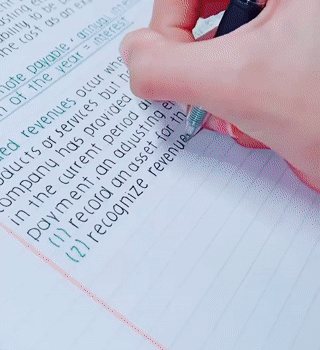 bility to be p
the cost as an exp
nate payable · annual
n of the year = interest
ed revenues occur whe
oducts or services but
ompany has provided
in the current period a
payment an adjusting e
(1) record an asset for th
(2) recognize revenue